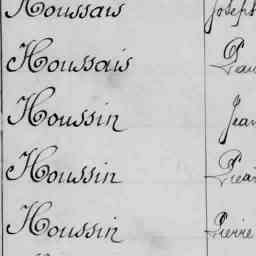 Houssais Joseph
Houssais Pau
Houssin Jean
Houssin Pier
Houssin Pierre